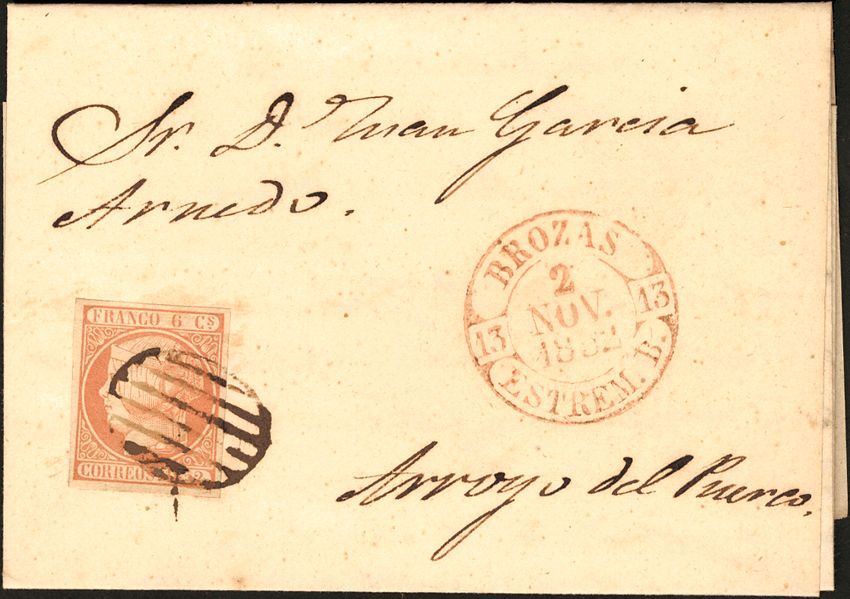 Sr. D. Juan Garcia
Arnedo.
BROZAS
2
NOV.
1852
13
13
ESTREM. B.
FRANCO 6 Cs
CORREOS
2
Arroyo del Puerco.